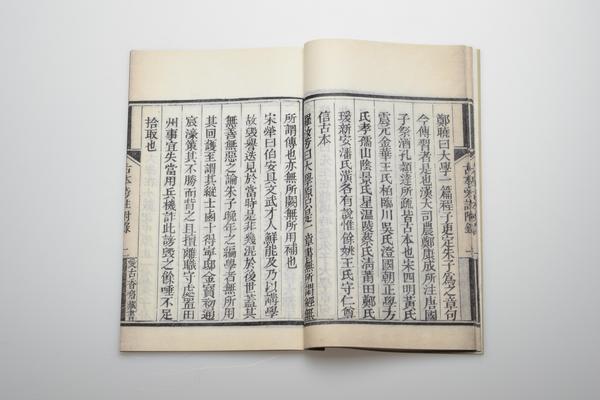 鄭曉曰大學一篇程子更定朱子爲之章句
今傳習者是也漢大司農鄭康成所注唐國
子祭酒孔穎達所疏皆古本也宋四明黃氏
震元金華王氏柏臨川吳氏澄國朝正學方
氏孝孺山陰景氏星溫陵蔡氏清莆田鄭氏
瑗新安潘氏潢各有說惟餘姚王氏守仁尊
信古本
所謂傳也亦無所闕無所用補也
宋犖曰伯安具文武才人鮮能及乃以講學
故毀譽迭見於當時是非幾混於後世蓋其
無善無惡之論朱子晚年之編學者無所用
其回護至謂其縱士國十得寧邸金寶初通
宸濠策其不勝而背之且擅離職守處置田
州事宜失當用兵機詐此謗毀之餘唾不足
拾取也
古本旁註附錄